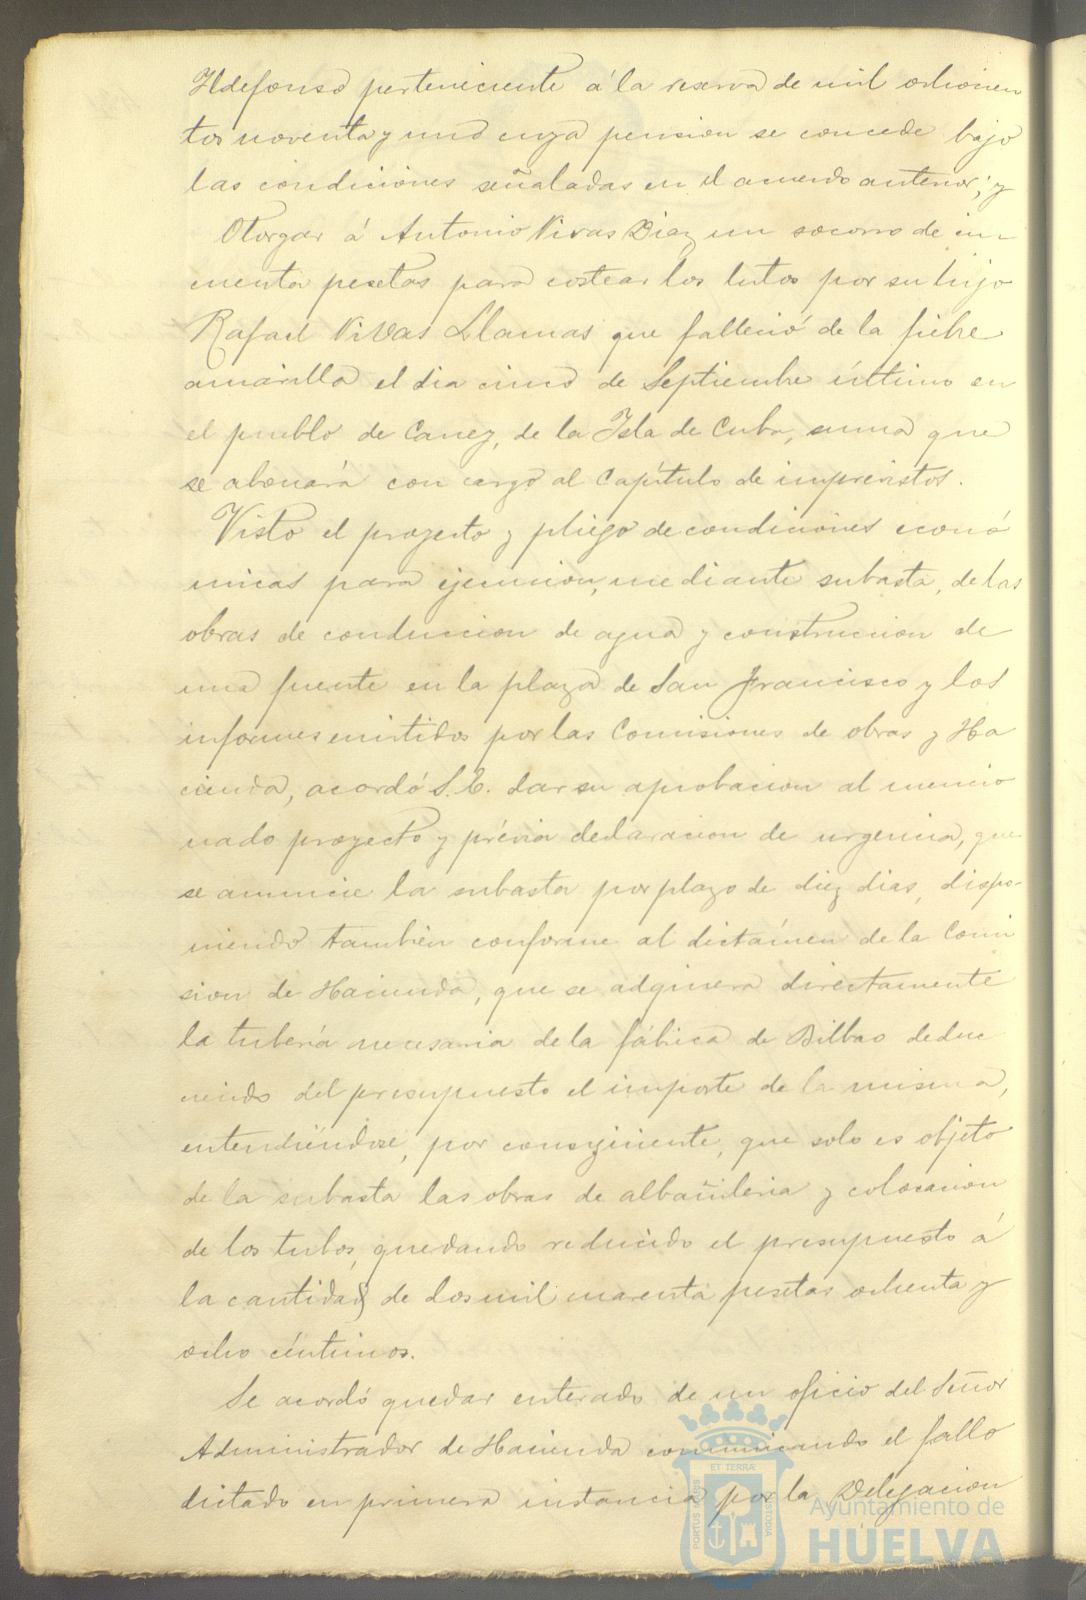 Ildefonso perteneciente á la reserva de mil ochocien
tos noventa y uno cuya pension se concede bajo
las condiciones señaladas en el acuerdo anterior; y
Otorgar á Antonio Vivas Diaz un socorro de cin
cuenta pesetas para costear los lutos por su hijo
Rafael Vivas Llamas que falleció de la fiebre
amarilla el dia cinco de Septiembre último en
el pueblo de Caney, de la Isla de Cuba, suma que
se abonará con cargo al Capítulo de imprevistos.
Visto el proyecto y pliego de condiciones econó
micas para ejecucion, mediante subasta, de las
obras de conduccion de agua y construccion de
una fuente en la plaza de San Francisco y los
informes emitidos por las Comisiones de obras y Ha
cienda, acordó S.E. dar su aprobacion al mencio
nado proyecto y prévia declaracion de urgencia, que
se anuncie la subasta por plazo de diez dias, dispo-
niendo tambien conforme al dictámen de la Comi
sion de Hacienda, que se adquiera directamente
la tubería necesaria de la fábrica de Bilbao dedu
ciendo del presupuesto el importe de la misma,
entendiéndose, por consiguiente, que solo es objeto
de la subasta las obras de albañileria y colocacion
de los tubos, quedando reducido el presupuesto á
la cantidad de dos mil cuarenta pesetas ochenta y
ocho céntimos.
Se acordó quedar enterado de un oficio del Señor
Administrador de Hacienda comunicando el fallo
dictado en primera instancia por la Delegacion
ET TERRÆ
PORTUS MARIS
CUSTODIA
Ayuntamiento de
HUELVA